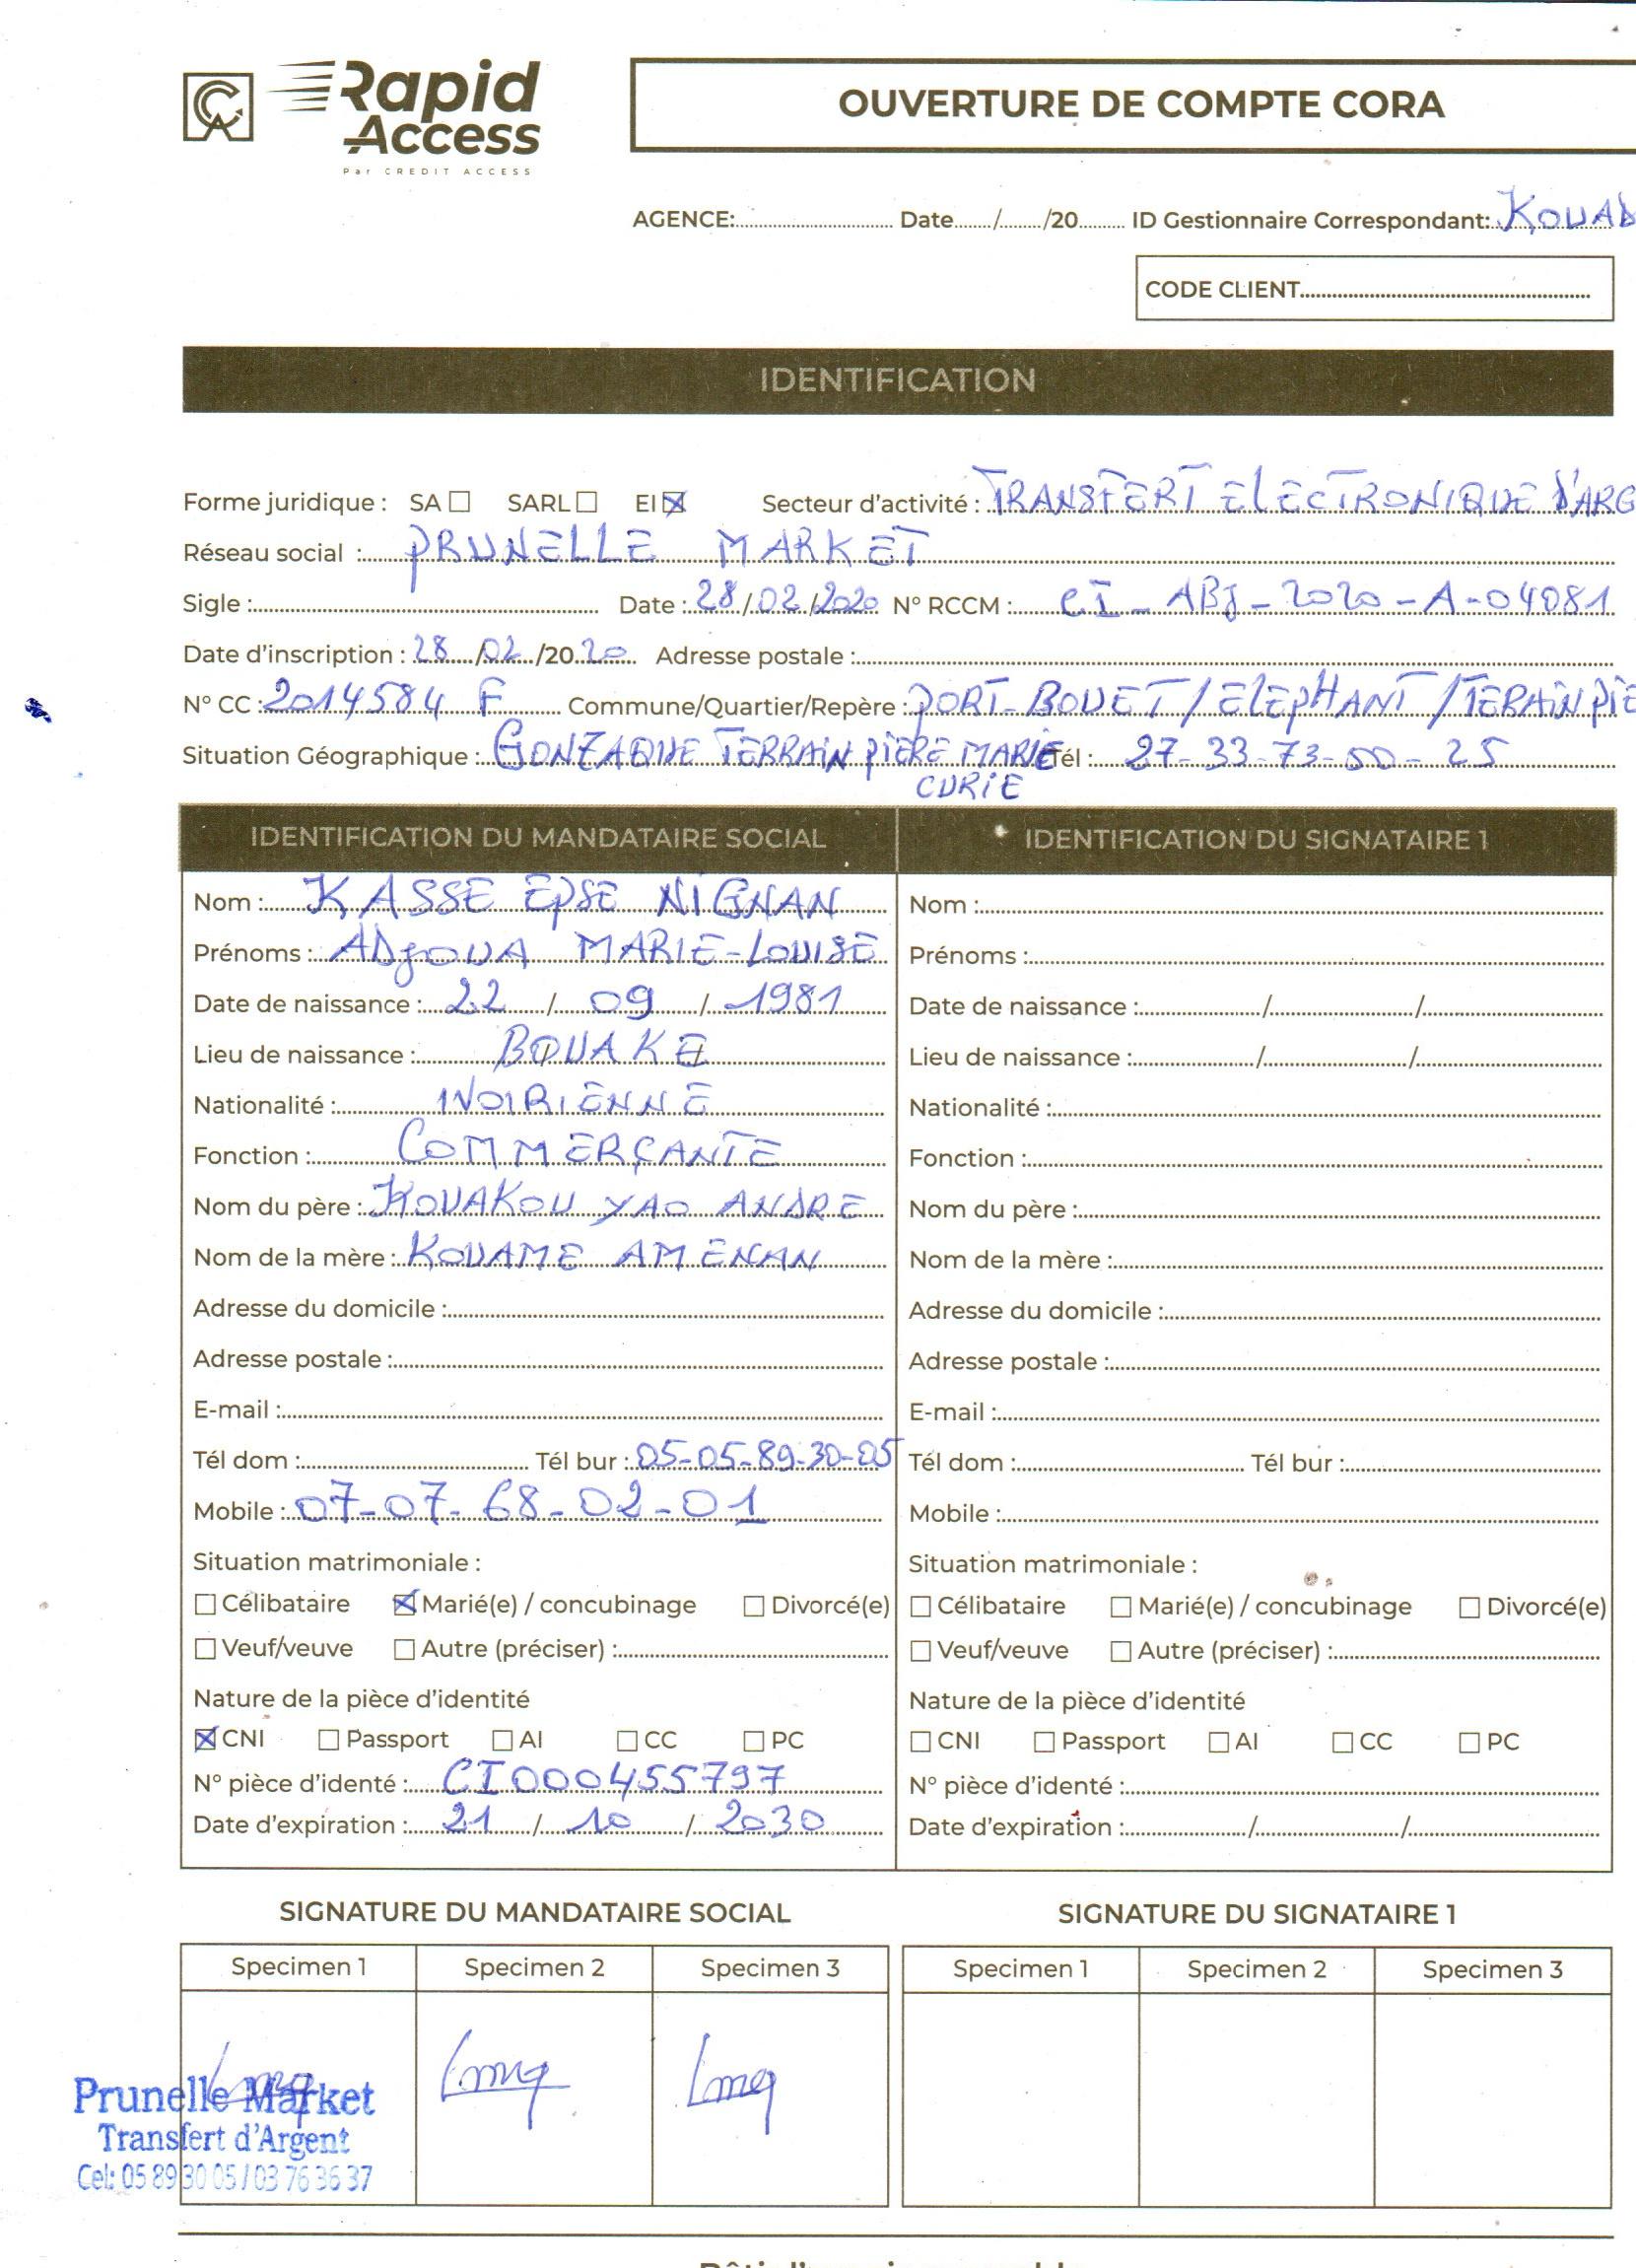 CA Rapid Access
Par CREDIT ACCESS
OUVERTURE DE COMPTE CORA
AGENCE:............ Date....../......../20......... ID Gestionnaire Correspondant: KOUAD
CODE CLIENT............
IDENTIFICATION
Forme juridique : SA ☐ SARL ☐ EI ☒ Secteur d'activité : TRANSFERT ELECTRONIQUE D'ARG
Réseau social : PRUNELLE MARKET
Sigle :............ Date : 28/02/2020 N° RCCM : CI-ABJ-2020-A-04081
Date d'inscription : 28/02/2020 Adresse postale :............
N° CC : 2014584 F Commune/Quartier/Repère : PORT-BOUET/ELEPHANT/TERAIN PIE
Situation Géographique : GONZAQUE TERRAIN PIERE MARIE Tél : 27-33-73-50-25
CURIE
IDENTIFICATION DU MANDATAIRE SOCIAL
Nom : KASSE EPSE NIGNAN
Prénoms : ADJOUA MARIE-LOUISE
Date de naissance : 22/09/1981
Lieu de naissance : BOUAKE
Nationalité : IVOIRIENNE
Fonction : COMMERÇANTE
Nom du père : KOUAKOU YAO ANDRE
Nom de la mère : KOUAME AMENAN
Adresse du domicile :............
Adresse postale :............
E-mail :............
Tél dom :............ Tél bur : 05-05-89-30-05
Mobile : 07-07-68-02-01
Situation matrimoniale :
☐ Célibataire ☒ Marié(e) / concubinage ☐ Divorcé(e)
☐ Veuf/veuve ☐ Autre (préciser) :............
Nature de la pièce d'identité
☒ CNI ☐ Passport ☐ AI ☐ CC ☐ PC
N° pièce d'identé : CI000455797
Date d'expiration : 21/10/2030
IDENTIFICATION DU SIGNATAIRE 1
Nom :............
Prénoms :............
Date de naissance :............/............/............
Lieu de naissance :............/............/............
Nationalité :............
Fonction :............
Nom du père :............
Nom de la mère :............
Adresse du domicile :............
Adresse postale :............
E-mail :............
Tél dom :............ Tél bur :............
Mobile :............
Situation matrimoniale :
☐ Célibataire ☐ Marié(e) / concubinage ☐ Divorcé(e)
☐ Veuf/veuve ☐ Autre (préciser) :............
Nature de la pièce d'identité
☐ CNI ☐ Passport ☐ AI ☐ CC ☐ PC
N° pièce d'identé :............
Date d'expiration :............/............/............
SIGNATURE DU MANDATAIRE SOCIAL
Specimen 1 Specimen 2 Specimen 3
Prunelle Market
Transfert d'Argent
Cel: 05 89 30 05 / 03 76 36 37
SIGNATURE DU SIGNATAIRE 1
Specimen 1 Specimen 2 Specimen 3